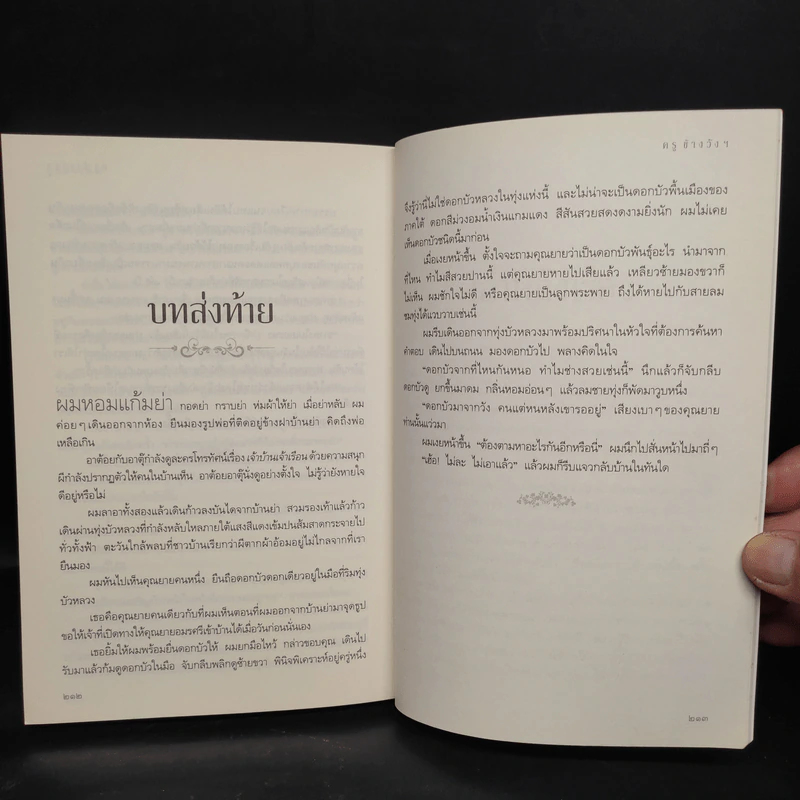 บทส่งท้าย
ผมหอมแก้มย่า กอดย่า กราบย่า ห่มผ้าให้ย่า เมื่อย่าหลับ ผม
ค่อยๆ เดินออกจากห้อง ยืนมองรูปพ่อที่ติดอยู่ข้างฝาบ้านย่า คิดถึงพ่อ
เหลือเกิน
อาต้อยกับอาตุ๊กำลังดูละครโทรทัศน์เรื่อง เจ้าบ้านเจ้าเรือน ด้วยความสนุก
ผีกำลังปรากฏตัวให้คนในบ้านเห็น อาต้อยอาตุ๊นั่งดูอย่างตั้งใจ ไม่รู้ว่ายังหายใจ
ดีอยู่หรือไม่
ผมลาอาทั้งสองแล้วเดินก้าวลงบันไดจากบ้านย่า สวมรองเท้าแล้วก้าว
เดินผ่านทุ่งบัวหลวงที่กำลังหลับใหลภายใต้แสงสีแดงเข้มปนส้มสาดกระจายไป
ทั่วทั้งฟ้า ตะวันใกล้พลบที่ชาวบ้านเรียกว่าผีตากผ้าอ้อมอยู่ไม่ไกลจากที่เรา
ยืนมอง
ผมหันไปเห็นคุณยายคนหนึ่ง ยืนถือดอกบัวดอกเดียวอยู่ในมือที่ริมทุ่ง
บัวหลวง
เธอคือคุณยายคนเดียวกับที่ผมเห็นตอนที่ผมออกจากบ้านย่ามาจุดธูป
ขอให้เจ้าที่เปิดทางให้คุณยายอมรศรีเข้าบ้านได้เมื่อวันก่อนนั่นเอง
เธอยิ้มให้ผมพร้อมยื่นดอกบัวให้ ผมยกมือไหว้ กล่าวขอบคุณ เดินไป
รับมาแล้วก้มดูดอกบัวในมือ จับกลีบพลิกดูซ้ายขวา พินิจพิเคราะห์อยู่ครู่หนึ่ง
๒๑๒
ครู ข้างวังฯ
จึงรู้ว่านี่ไม่ใช่ดอกบัวหลวงในทุ่งแห่งนี้ และไม่น่าจะเป็นดอกบัวพื้นเมืองของ
ภาคใต้ ดอกสีม่วงอมน้ำเงินแกมแดง สีสันสวยสดงดงามยิ่งนัก ผมไม่เคย
เห็นดอกบัวชนิดนี้มาก่อน
เมื่อเงยหน้าขึ้น ตั้งใจจะถามคุณยายว่าเป็นดอกบัวพันธุ์อะไร นำมาจาก
ที่ไหน ทำไมสีสวยปานนี้ แต่คุณยายหายไปเสียแล้ว เหลียวซ้ายมองขวาก็
ไม่เห็น ผมชักใจไม่ดี หรือคุณยายเป็นลูกพระพาย ถึงได้หายไปกับสายลม
ชมทุ่งได้แวบวาบเช่นนี้
ผมรีบเดินออกจากทุ่งบัวหลวงมาพร้อมปริศนาในหัวใจที่ต้องการค้นหา
คำตอบ เดินไปบนถนน มองดอกบัวไป พลางคิดในใจ
“ดอกบัวจากที่ไหนกันหนอ ทำไมช่างสวยเช่นนี้” นึกแล้วก็จึงจับกลีบ
ดอกบัวดู ยกขึ้นมาดม กลิ่นหอมอ่อนๆ แล้วลมชายทุ่งก็พัดมาวูบหนึ่ง
“ดอกบัวมาจากวัง คนแต่หนหลังเขารออยู่” เสียงเบาๆ ของคุณยาย
ท่านนั้นแว่วมา
ผมเงยหน้าขึ้น “ต้องตามหาอะไรกันอีกหรือนี่” ผมนึกไปสั่นหน้าไปมาถี่ๆ
“เฮ้อ! ไม่ละ ไม่เอาแล้ว” แล้วผมก็รีบแจวกลับบ้านในทันใด
๒๑๓